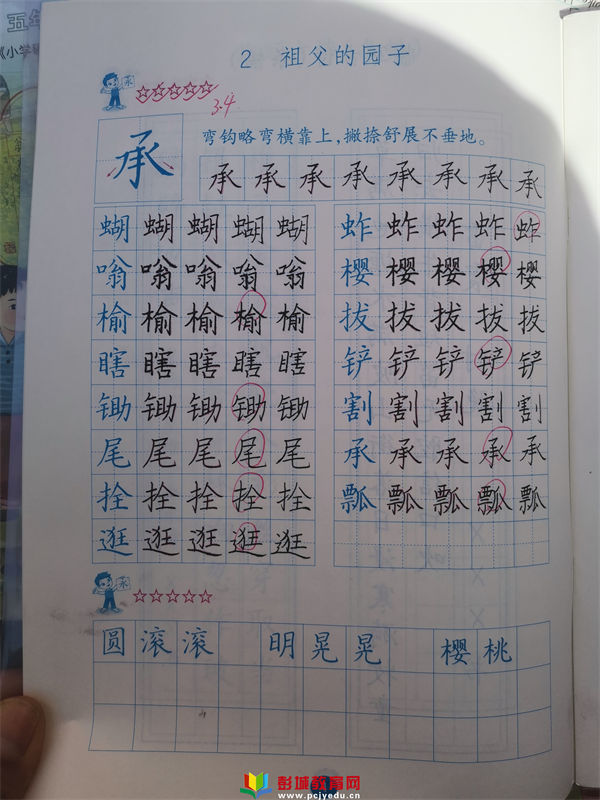 五年
《小学
2 祖父的园子
3.4
承
弯钩略弯横靠上,撇捺舒展不垂地。
承 承 承 承 承 承 承 承
蝴 蝴 蝴 蝴 蝴 蚱 蚱 蚱 蚱 蚱
嗡 嗡 嗡 嗡 嗡 樱 樱 樱 樱 樱
榆 榆 榆 榆 榆 拔 拔 拔 拔 拔
瞎 瞎 瞎 瞎 瞎 铲 铲 铲 铲 铲
锄 锄 锄 锄 锄 割 割 割 割 割
尾 尾 尾 尾 尾 承 承 承 承 承
拴 拴 拴 拴 拴 瓢 瓢 瓢 瓢 瓢
逛 逛 逛 逛 逛
圆 滚 滚 明 晃 晃 樱 桃
彭城教育网
www.pcjyedu.cn